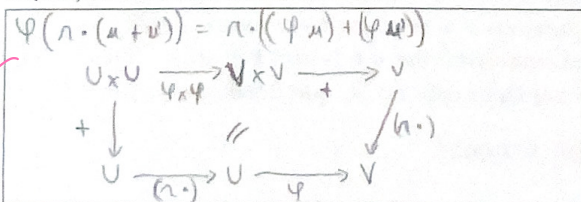 φ(r·(u+u')) = r·((φu)+(φu'))
U×U →φ×φ V×V →+ V
+ ↓ // ↓ (r·)
U →(r·) U →φ V